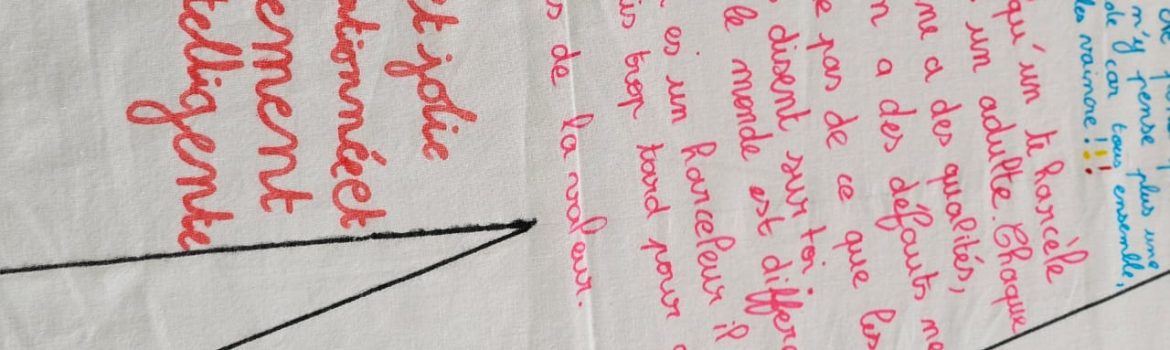 m'y pense plus une
de car tous ensemble,
les vaincre !!!
qu'un te harcèle
un adulte. Chaque
ne a des qualités,
n a des défauts ne
e pas de ce que les
disent sur toi
le monde est différ
es un harceleur il
is trop tard pour
s de la valeur.
t jolie
tionnée et
ement
telligente